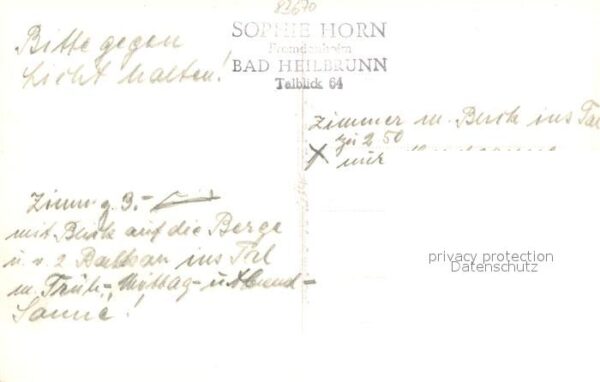 82670
SOPHIE HORN
Fremdenheim
BAD HEILBRUNN
Talblick 64
Bitte gegen
Licht halten!
Zimmer m. Blick ins Tal
zu 2 50
x nur
Zimm. z. 3.-
mit Blick auf die Berge
u. 2 Balkon ins Tal
m. Früh-, Mittag- u. Abend-
Sonne!
privacy protection
Datenschutz